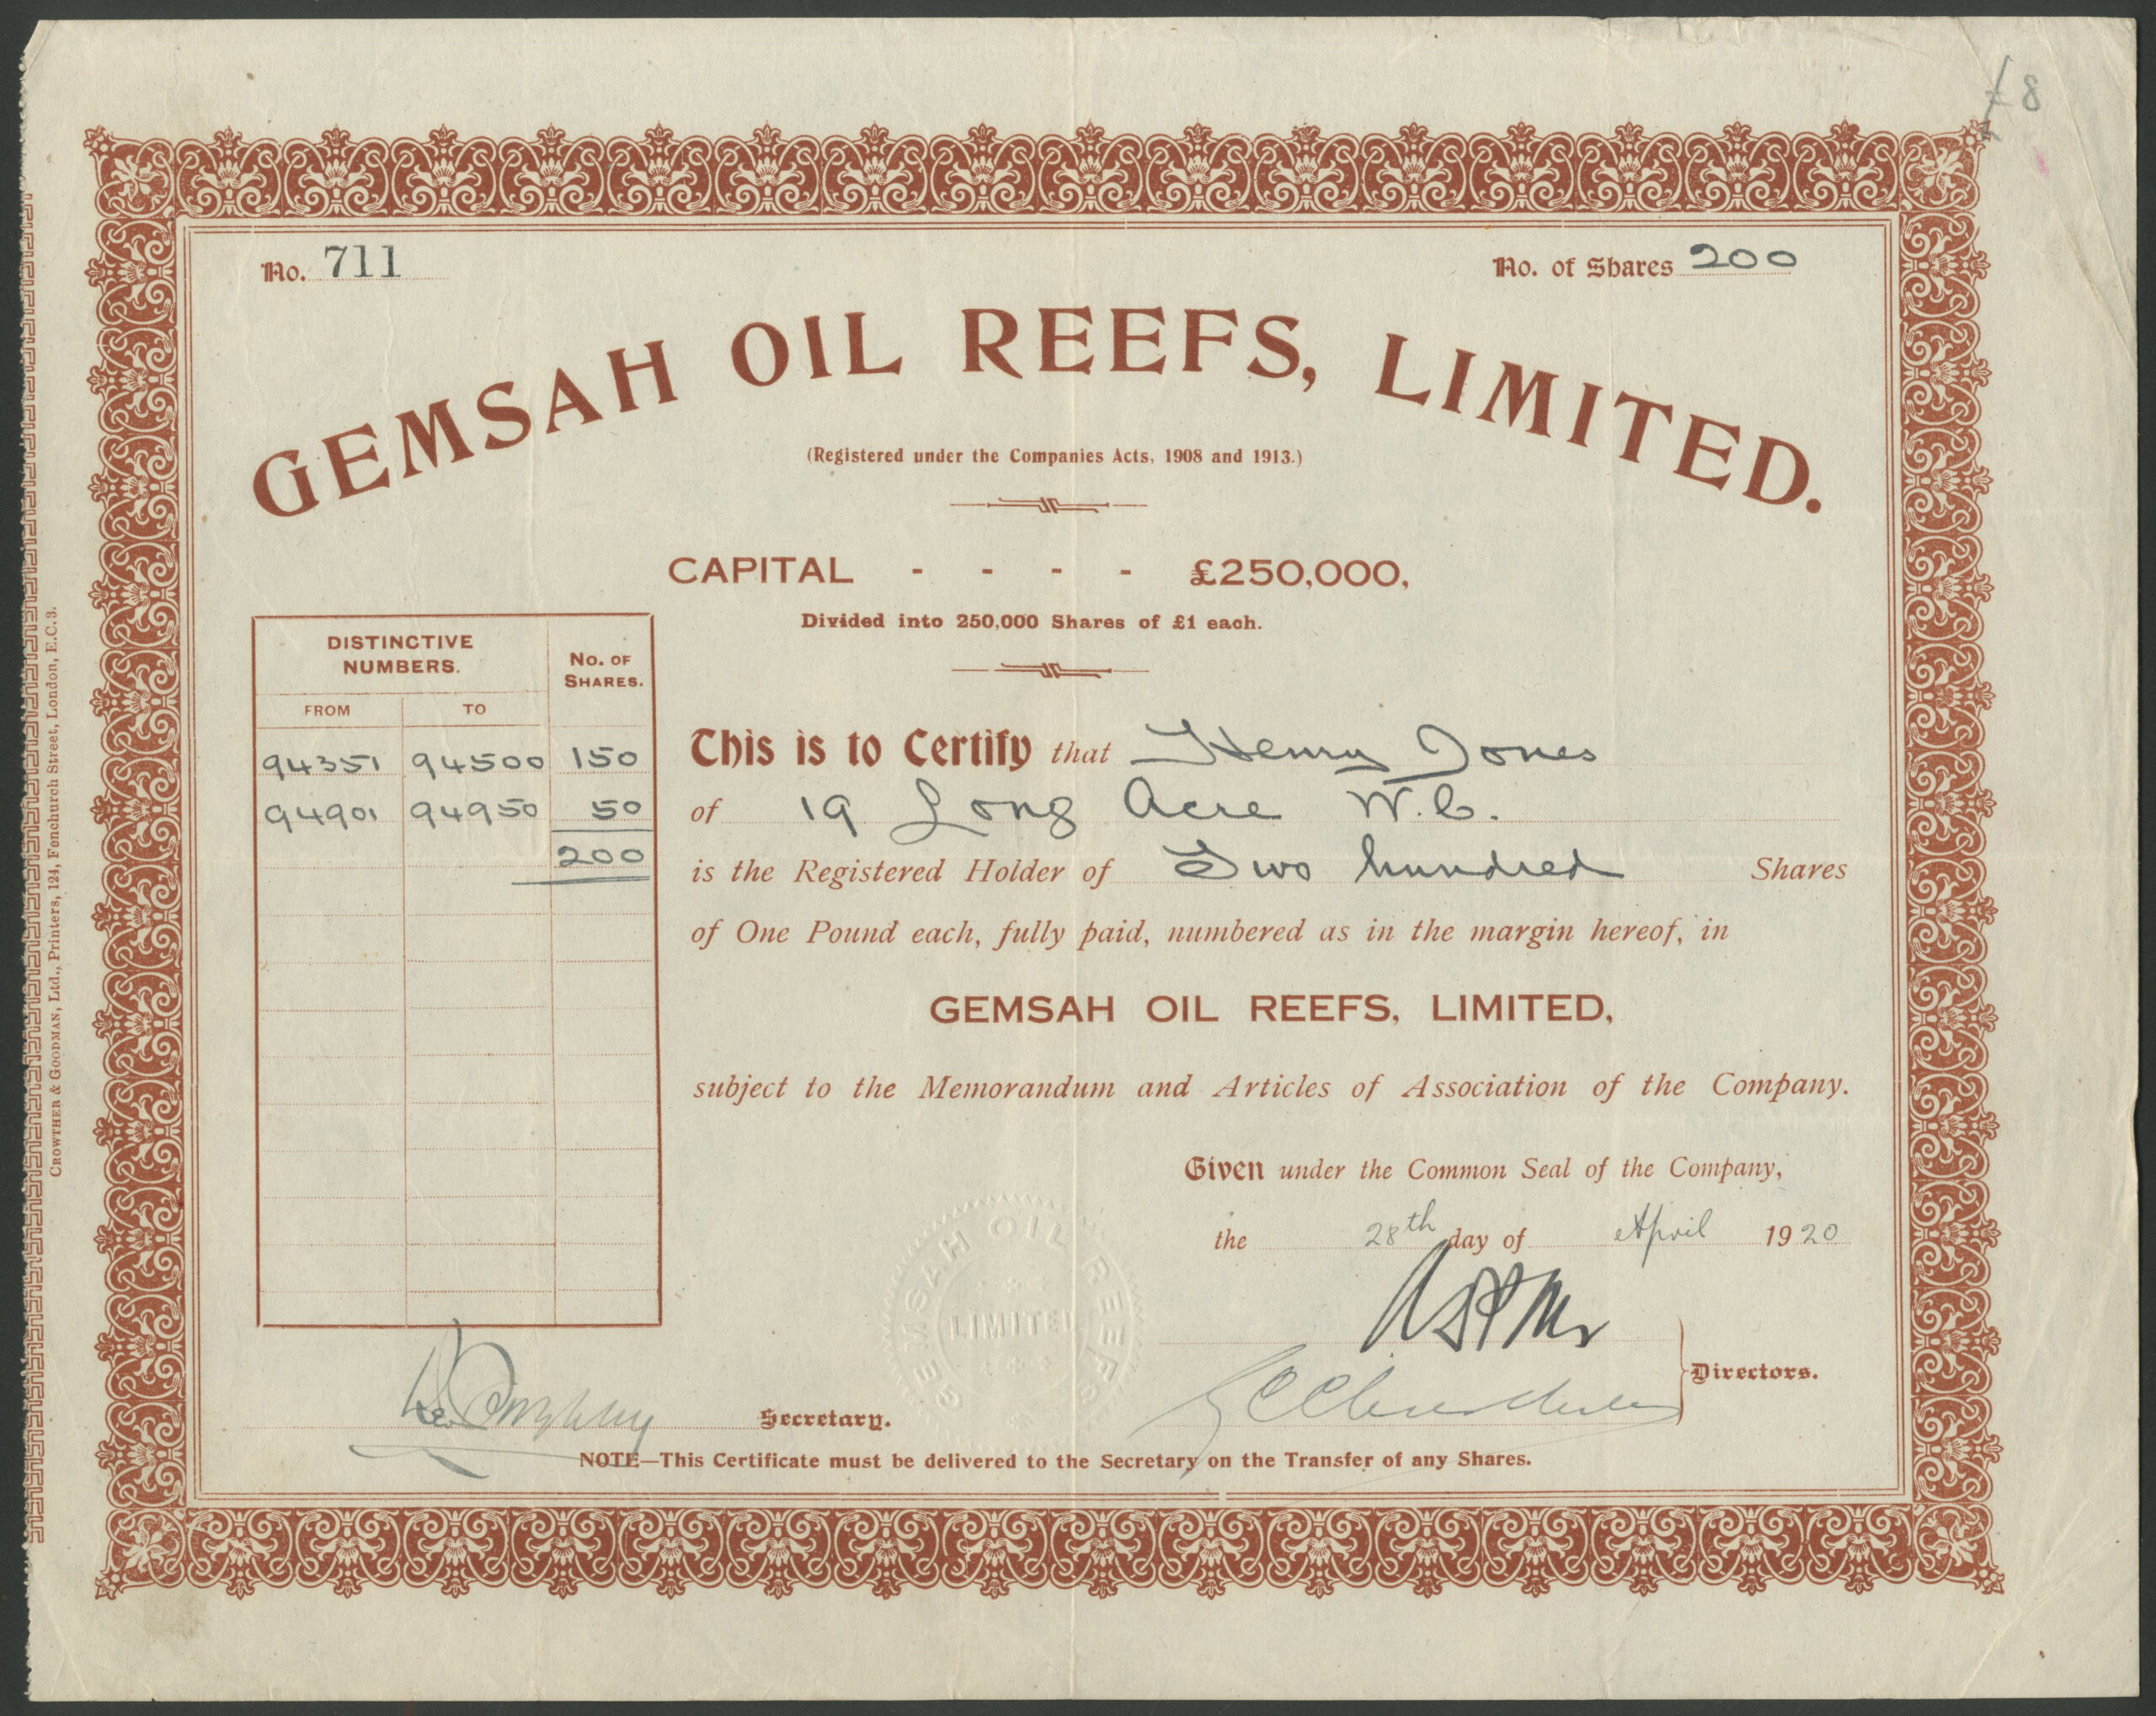 £8
No. 711
No. of Shares 200
GEMSAH OIL REEFS, LIMITED.
(Registered under the Companies Acts, 1908 and 1913.)
CAPITAL - - - - £250,000,
Divided into 250,000 Shares of £1 each.
DISTINCTIVE NUMBERS.
No. OF SHARES.
FROM TO
94351 94500 150
94901 94950 50
200
This is to Certify that Henry Jones
of 19 Long Acre W.C.
is the Registered Holder of Two hundred Shares
of One Pound each, fully paid, numbered as in the margin hereof, in
GEMSAH OIL REEFS, LIMITED,
subject to the Memorandum and Articles of Association of the Company.
Given under the Common Seal of the Company,
the 28th day of April 1920
GEMSAH OIL REEFS
LIMITED
Directors.
Secretary.
NOTE—This Certificate must be delivered to the Secretary on the Transfer of any Shares.
CROWTHER & GOODMAN, Ltd., Printers, 124, Fenchurch Street, London, E.C.3.